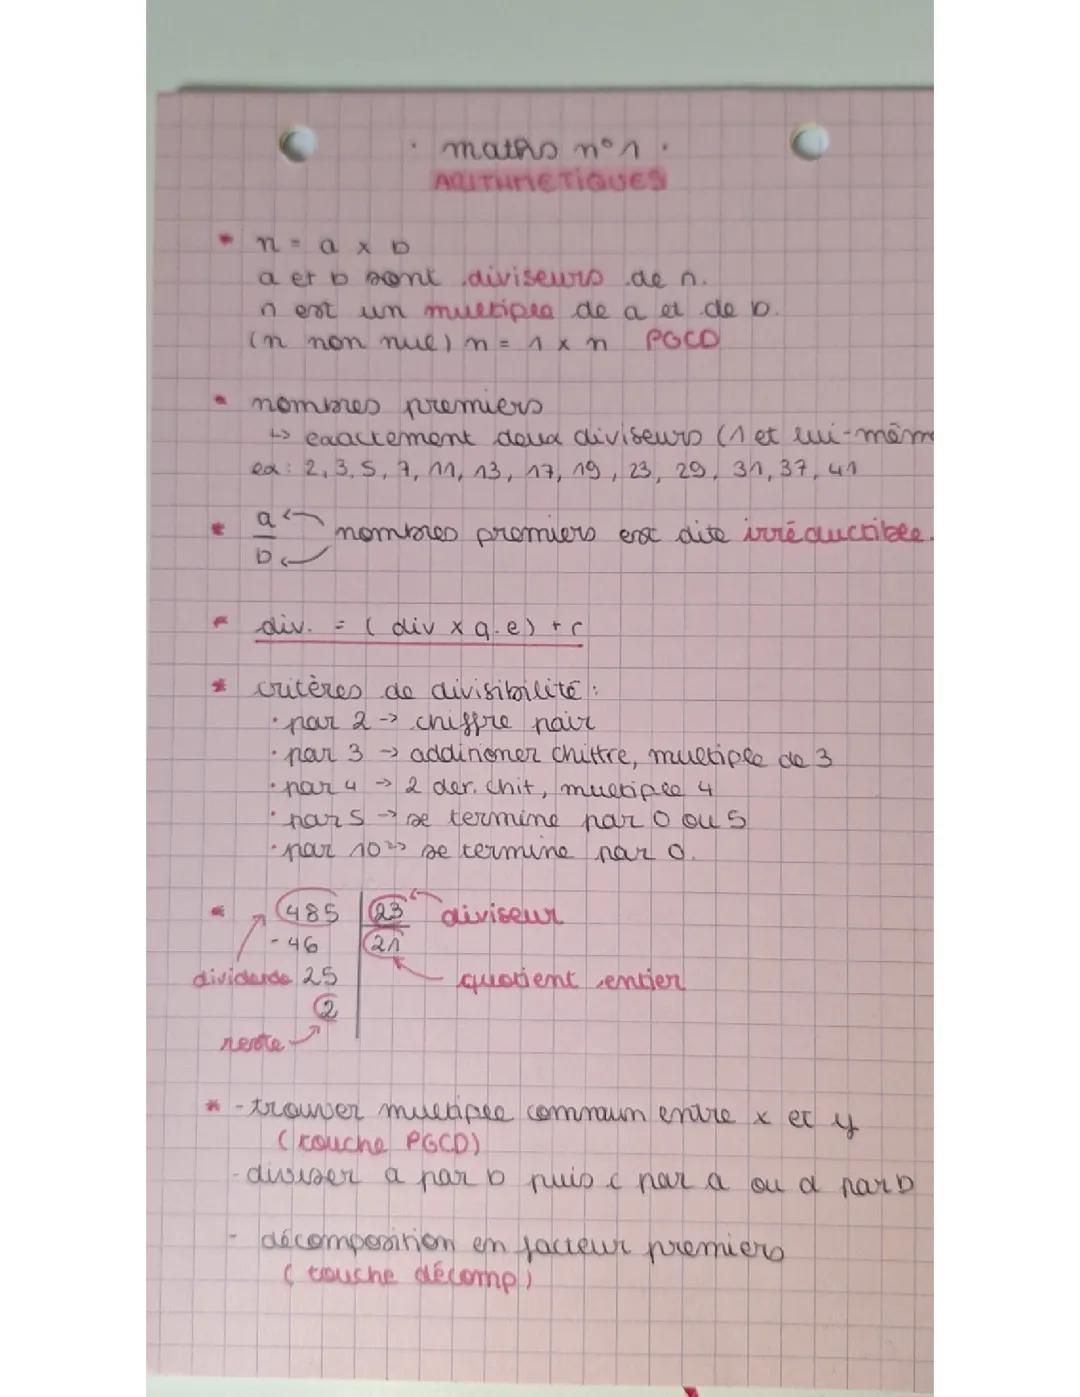 · maths n°1 ·
ARITHMETIQUES
* n = a x b
a et b sont diviseurs de n.
n est un multiple de a et de b.
(n non nul) n = 1 x n PGCD
* nombres premiers
↳ exactement deux diviseurs (1 et lui-mêm
ex : 2, 3, 5, 7, 11, 13, 17, 19, 23, 29, 31, 37, 41
* a/b nombres premiers est dite irréductible.
* div. = ( div x q.e) + r
* critères de divisibilité :
· par 2 -> chiffre pair
· par 3 -> additionner chiffre, multiple de 3
· par 4 -> 2 der. chif, multiple 4
· par 5 -> se termine par 0 ou 5
· par 10 -> se termine par 0.
* 485 23 diviseur
- 46 21
dividende 25 quotient entier
2
reste
* - trouver multiple commun entre x et y
( touche PGCD)
- diviser a par b puis c par a ou d par b
- décomposition en facteur premiers
( touche décomp)